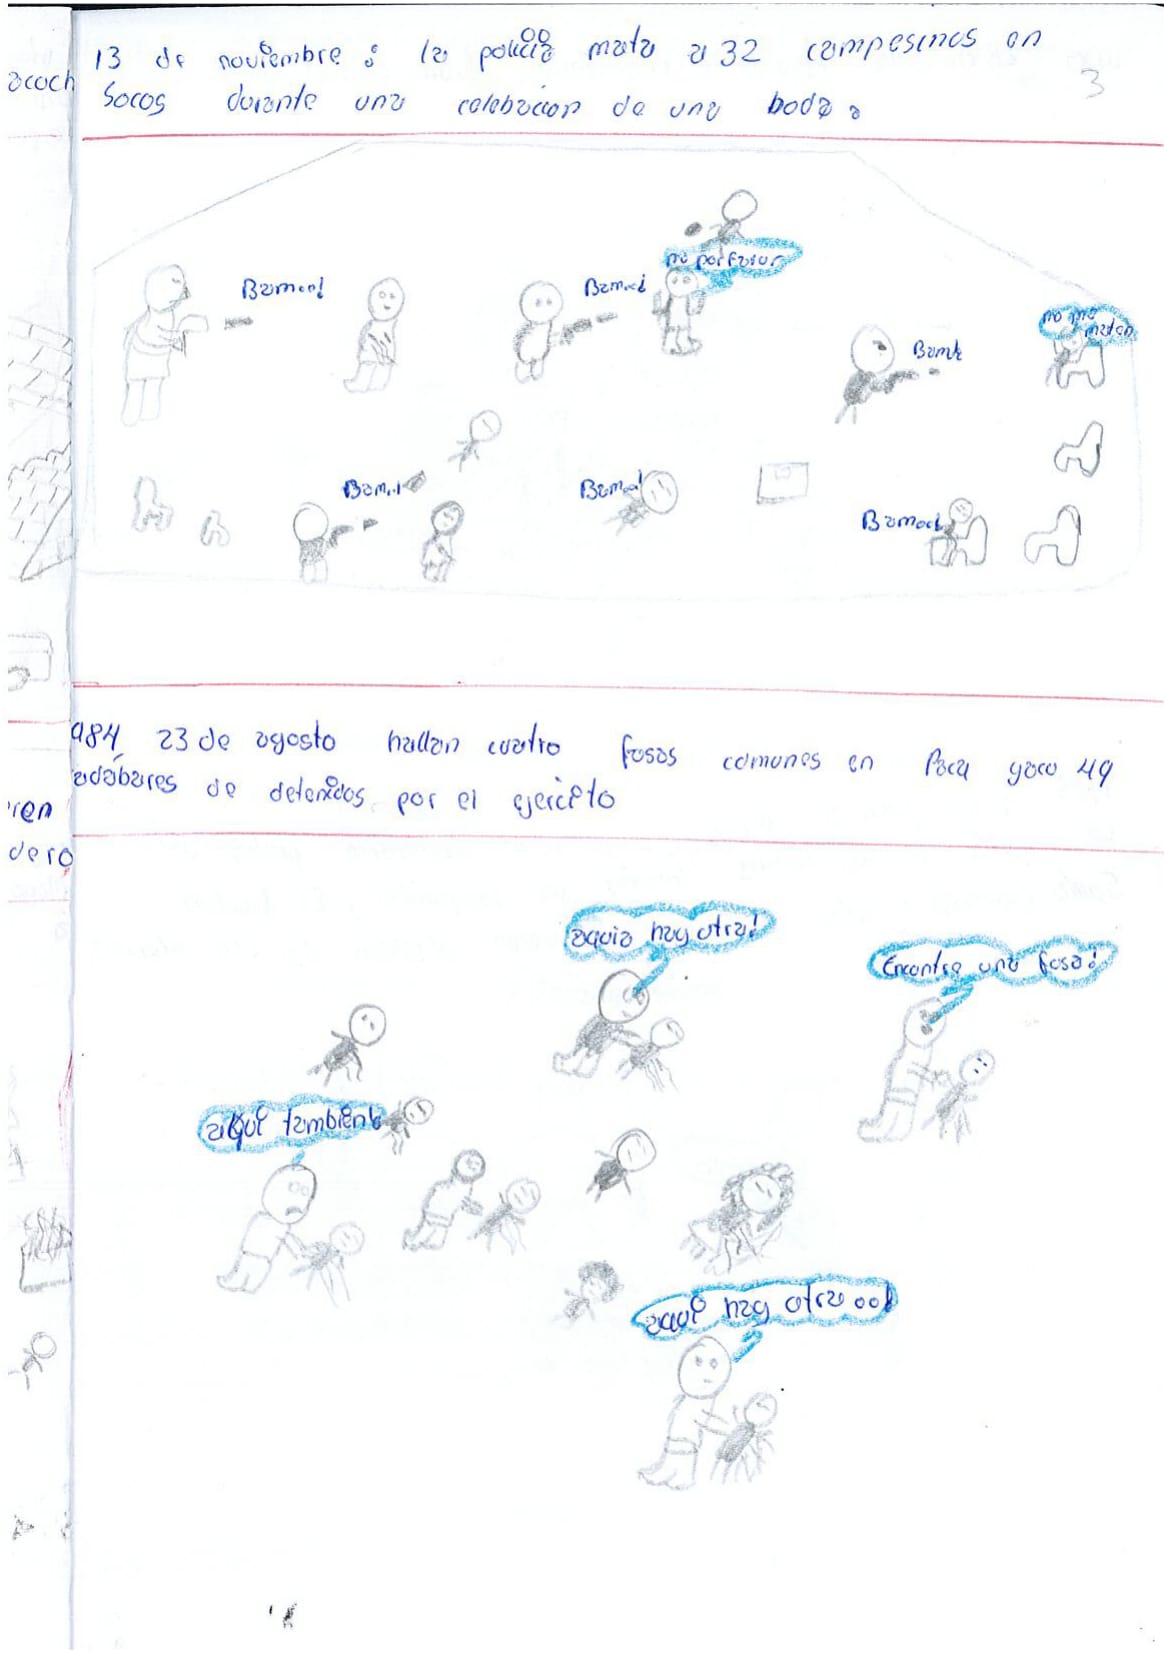 13 de noviembre : la policia mata a 32 campesinos en
Socos durante una celebracion de una boda.
3
acoch
no por favor
Bamm!
Bamm!
no me
maten
Bamm!
Bamm!
Bamm!
984 23 de agosto hallan cuatro fosas comunes en Poca yaco 49
adábares de detenidos por el ejercito
ren
dero
aquia hay otra!
Encontre una fosa!
aqui tambien
aqui hay otra oo!